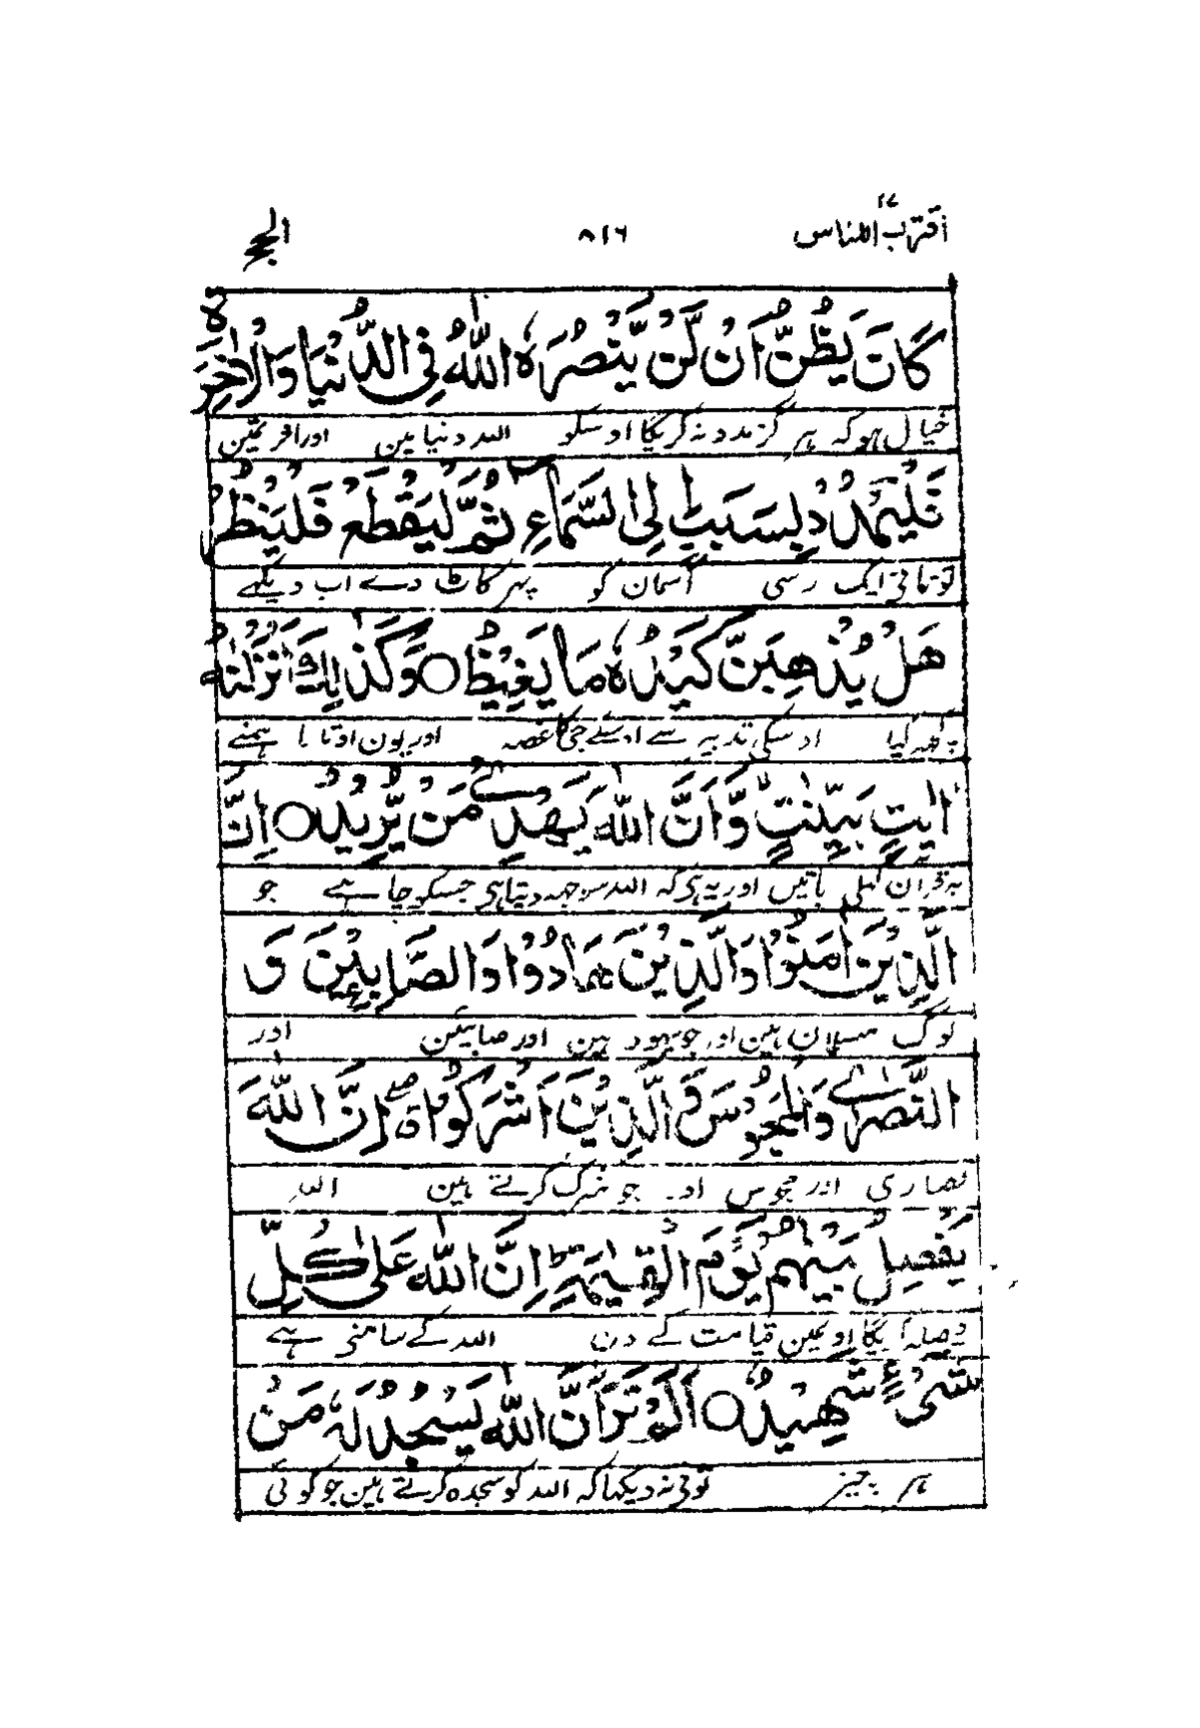 اقترب للناس ١٧ ٨١٦ الحج
كَانَ يَظُنُّ اَنْ لَّنْ يَّنْصُرَهُ اللّٰهُ فِى الدُّنْيَا وَالْاٰخِرَةِ
خیال ہو کہ ہر گز مدد نہ کریگا اوسکو اللہ دنیا مین اور اخرت مین
فَلْيَمْدُدْ بِسَبَبٍ اِلَى السَّمَآءِ ثُمَّ لْيَقْطَعْ فَلْيَنْظُرْ
تو تانی ایک رسی آسمان کو پہر کاٹ دے اب دیکہے
هَلْ يُذْهِبَنَّ كَيْدُهٗ مَا يَغِيْظُ ○ وَكَذٰلِكَ اَنْزَلْنٰهُ
کچہہ گیا اوسکی تدبیر سے اوسکے جی کا غصہ اور یون اوتارا ہمنے
اٰيٰتٍۢ بَيِّنٰتٍ وَّاَنَّ اللّٰهَ يَهْدِىْ مَنْ يُّرِيْدُ ○ اِنَّ
یہ قرآن کہلی باتین اور یہ ہی کہ اللہ سوجہہ دیتا ہی جسکو چاہے جو
الَّذِيْنَ اٰمَنُوْا وَالَّذِيْنَ هَادُوْا وَالصَّابِئِيْنَ وَ
لوگ مسلمان ہین اور جو یہود ہین اور صابئین اور
النَّصٰرٰى وَالْمَجُوْسَ وَالَّذِيْنَ اَشْرَكُوْا ۖ اِنَّ اللّٰهَ
نصاری اور مجوس اور جو شرک کرتے ہین اللہ
يَفْصِلُ بَيْنَهُمْ يَوْمَ الْقِيٰمَةِ ؕ اِنَّ اللّٰهَ عَلٰى كُلِّ
فیصلہ کریگا اونمین قیامت کے دن اللہ کے سامنی ہے
شَىْءٍ شَهِيْدٌ ○ اَلَمْ تَرَ اَنَّ اللّٰهَ يَسْجُدُ لَهٗ مَنْ
ہر چیز تونی نہ دیکہا کہ اللہ کو سجدہ کرتے ہین جو کوئی